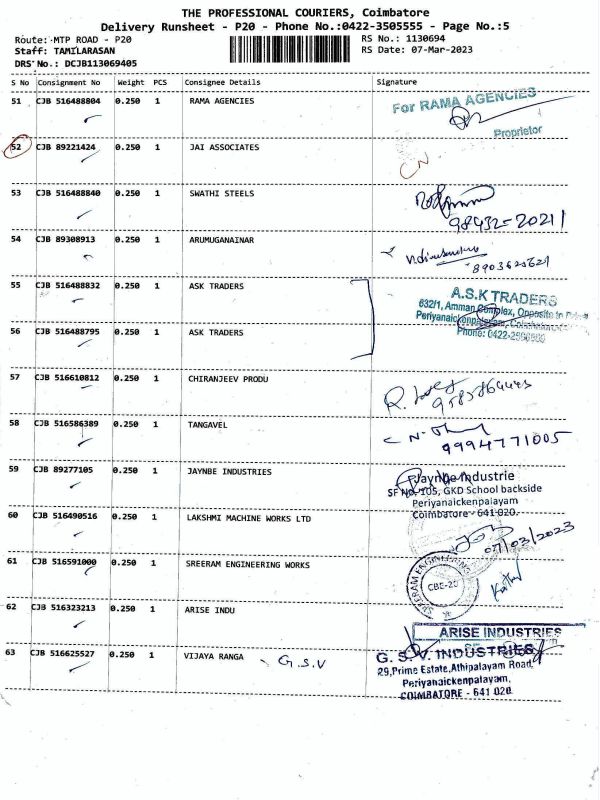 THE PROFESSIONAL COURIERS, Coimbatore
Delivery Runsheet - P20 - Phone No.:0422-3505555 - Page No.:5
Route: MTP ROAD - P20
RS No.: 1130694
Staff: TAMILARASAN
RS Date: 07-Mar-2023
DRS No.: DCJB113069405
S No Consignment No Weight PCS Consignee Details Signature
51 CJB 516488804 0.250 1 RAMA AGENCIES
For RAMA AGENCIES
Proprietor
52 CJB 89221424 0.250 1 JAI ASSOCIATES
CN
53 CJB 516488840 0.250 1 SWATHI STEELS
98432-20211
54 CJB 89308913 0.250 1 ARUMUGANAINAR
55 CJB 516488832 0.250 1 ASK TRADERS
A.S.K TRADERS
632/1, Amman Complex, Opposite to
Periyanaickenpalayam,
Phone: 0422-
56 CJB 516488795 0.250 1 ASK TRADERS
57 CJB 516610812 0.250 1 CHIRANJEEV PRODU
58 CJB 516586389 0.250 1 TANGAVEL
9994771005
59 CJB 89277105 0.250 1 JAYNBE INDUSTRIES
Jaynbe Industrie
SF No. 105, GKD School backside
Periyanaickenpalayam
Coimbatore - 641 020.
60 CJB 516490516 0.250 1 LAKSHMI MACHINE WORKS LTD
07/03/2023
61 CJB 516591000 0.250 1 SREERAM ENGINEERING WORKS
SREERAM ENGINEERING
CBE-20
62 CJB 516323213 0.250 1 ARISE INDU
ARISE INDUSTRIES
63 CJB 516625527 0.250 1 VIJAYA RANGA - G.S.V
G. S. V. INDUSTRIES
29,Prime Estate,Athipalayam Road,
Periyanaickenpalayam,
COIMBATORE - 641 020.